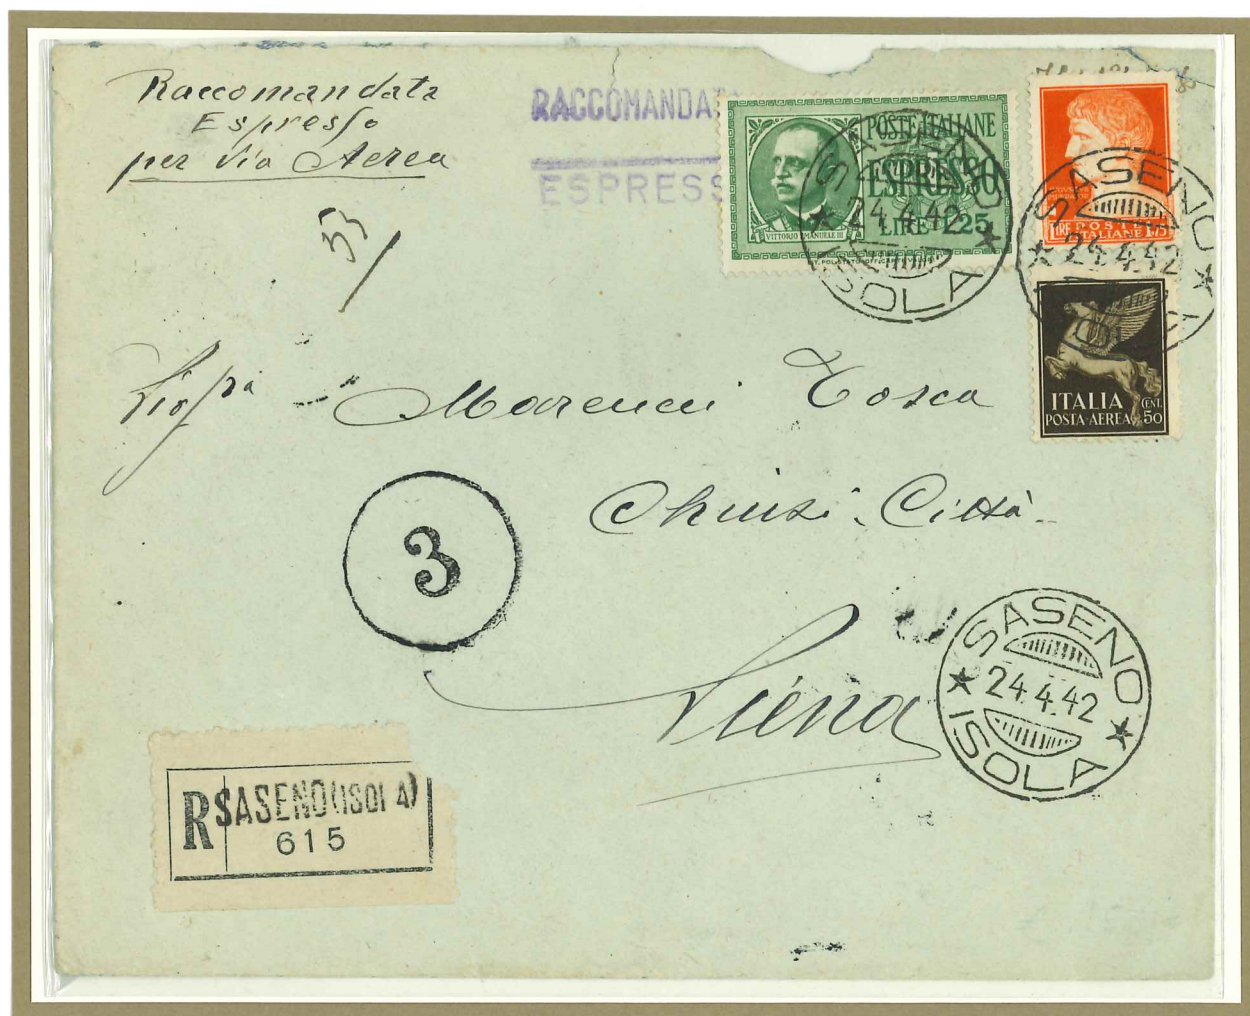 Raccomandata
Espresso
per Via Aerea
53
RACCOMANDAT
ESPRESS
POSTE ITALIANE
ESPRESSO
LIRE 1,25
VITTORIO EMANUELE III
SASENO
24.4.42
ISOLA
LIRE POSTE 1,75
ITALIANE
SASENO
24.4.42
ISOLA
ITALIA
POSTA AEREA CENT. 50
Tosca
Chiusi Città
3
Siena
SASENO
24.4.42
ISOLA
R SASENO (ISOLA)
615